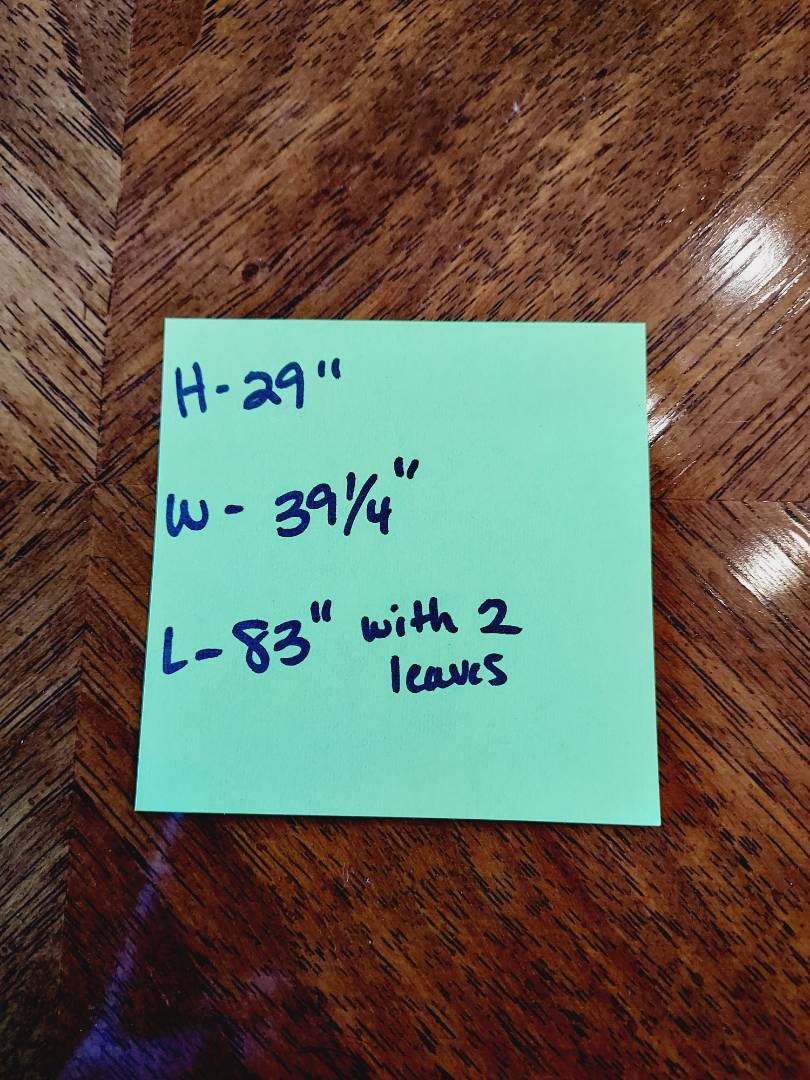 H-29"
W- 39 1/4"
L-83" with 2
leaves